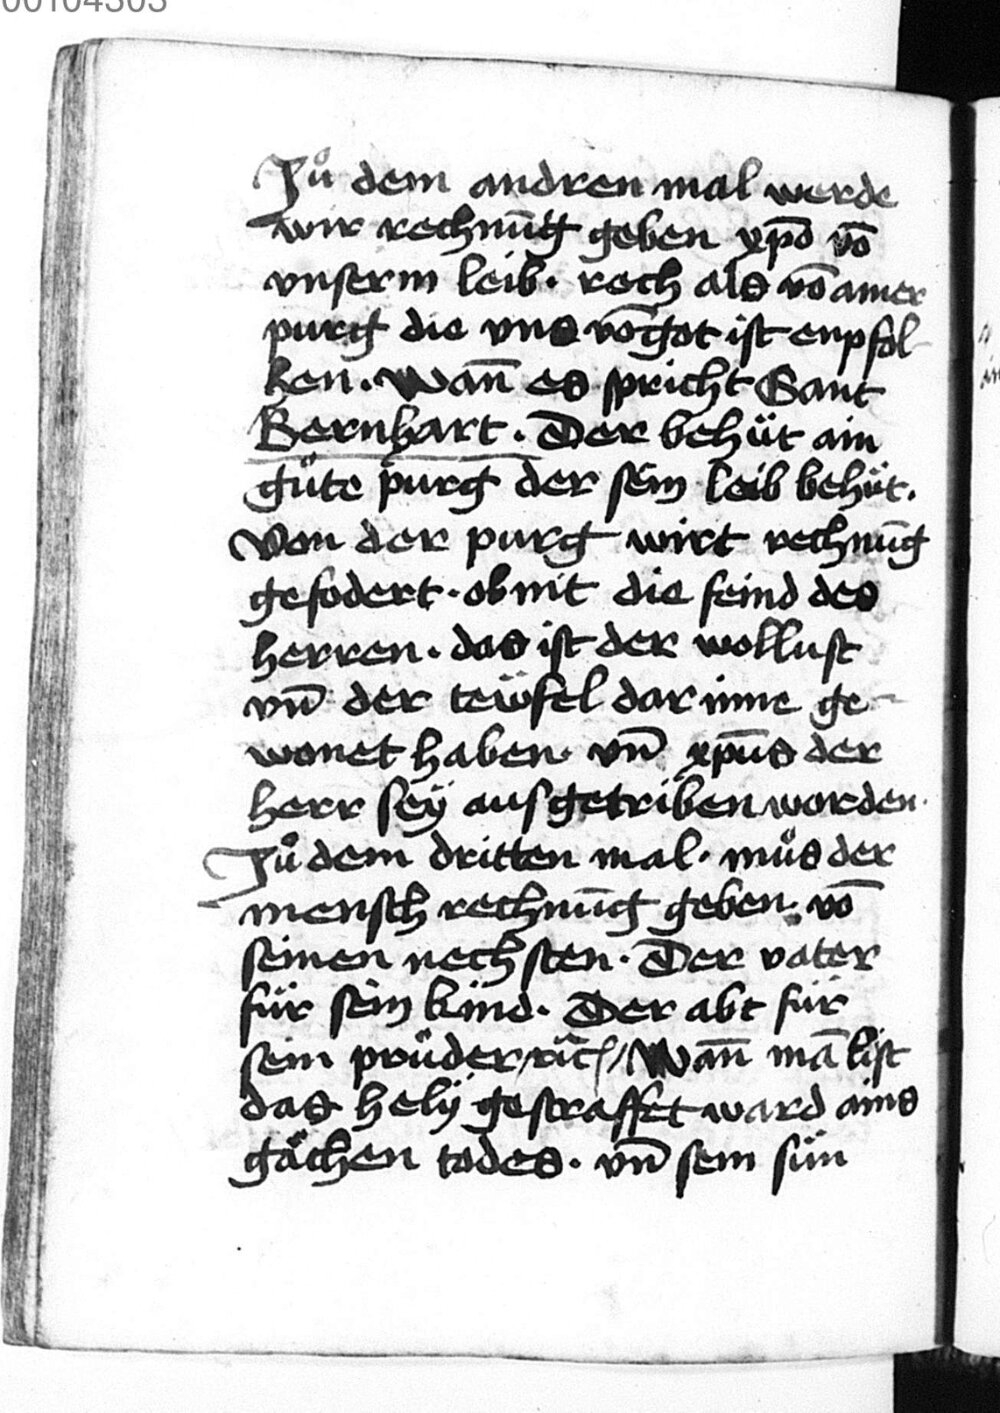 00104303
Zů dem andren mal werde
wir rechnu̅g geben xp̅o vo̅
vnserm leib. rech als vo̅ ainer
purg die vns vo̅ got ist enpfol-
ken. Wan̅ es spricht Sant
Bernhart. Der behüt ain
gůte purg der sein leib behüt.
Von der purg wirt rechnu̅g
gefodert. ob nit die feind des
herren. das ist der wollust
vn̅ der teüfel dar inne ge-
wonet haben. vn̅ xpu̅s der
herr seÿ ausgetriben worden.
Zů dem dritten mal. můs der
mensch rechnu̅g geben. vo̅
seinen nechsten. Der vater
für sein kind. Der abt für
sein průder / Wan̅ ma̅ list
das helÿ gestraffet ward ains
gächen todes. vn̅ sein sün